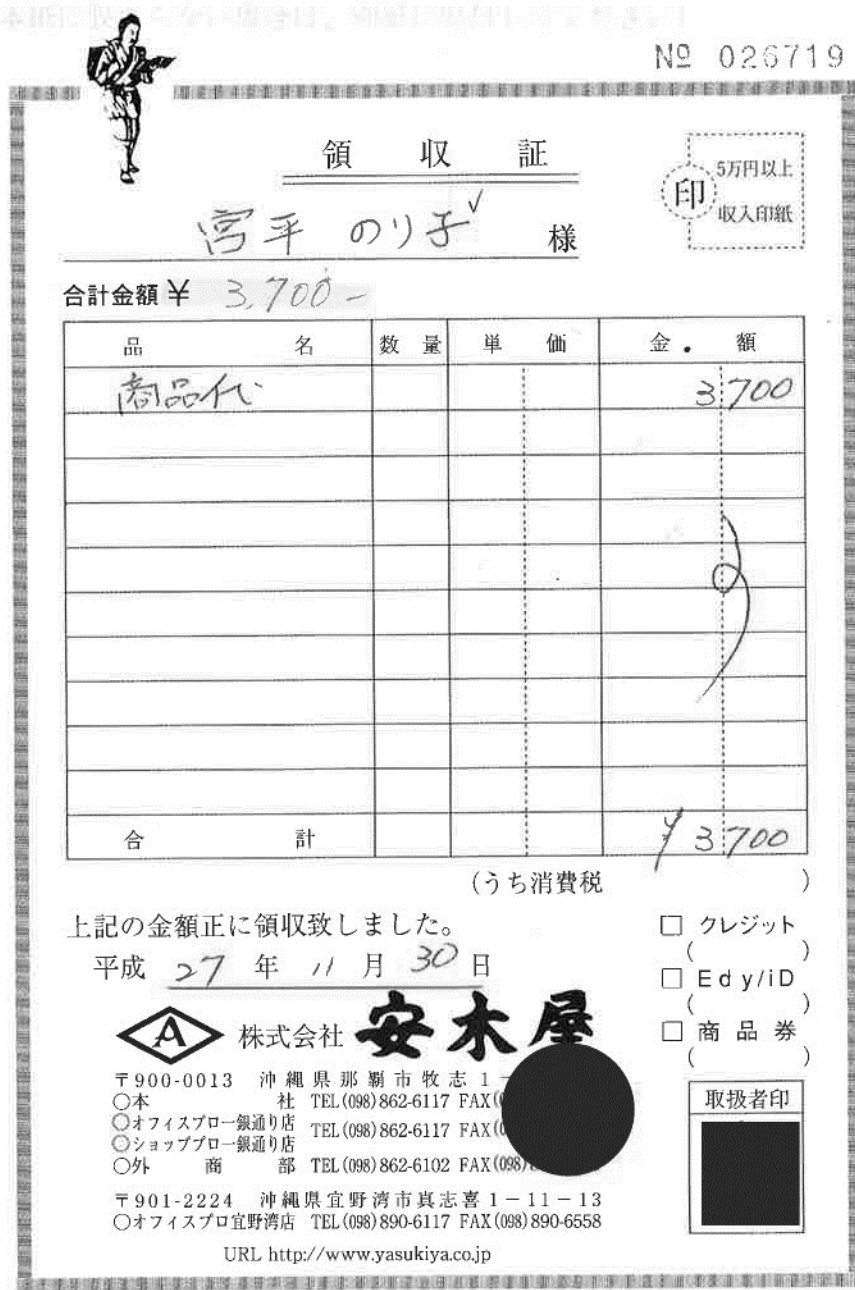 № 026719
領収証
印 5万円以上
収入印紙
宮平 のり子 様
合計金額 ¥ 3,700-
品名 数量 単価 金額
商品代 3700
合計 ¥3700
(うち消費税 )
上記の金額正に領収致しました。
平成 27 年 11 月 30 日
□ クレジット
( )
□ Edy/iD
( )
□ 商品券
( )
A 株式会社 安木屋
〒900-0013 沖縄県那覇市牧志1
○本社 TEL(098)862-6117 FAX
○オフィスプロ一銀通り店
○ショッププロ一銀通り店 TEL(098)862-6117 FAX
○外商部 TEL(098)862-6102 FAX(098)
〒901-2224 沖縄県宜野湾市真志喜1-11-13
○オフィスプロ宜野湾店 TEL(098)890-6117 FAX(098)890-6558
URL http://www.yasukiya.co.jp
取扱者印